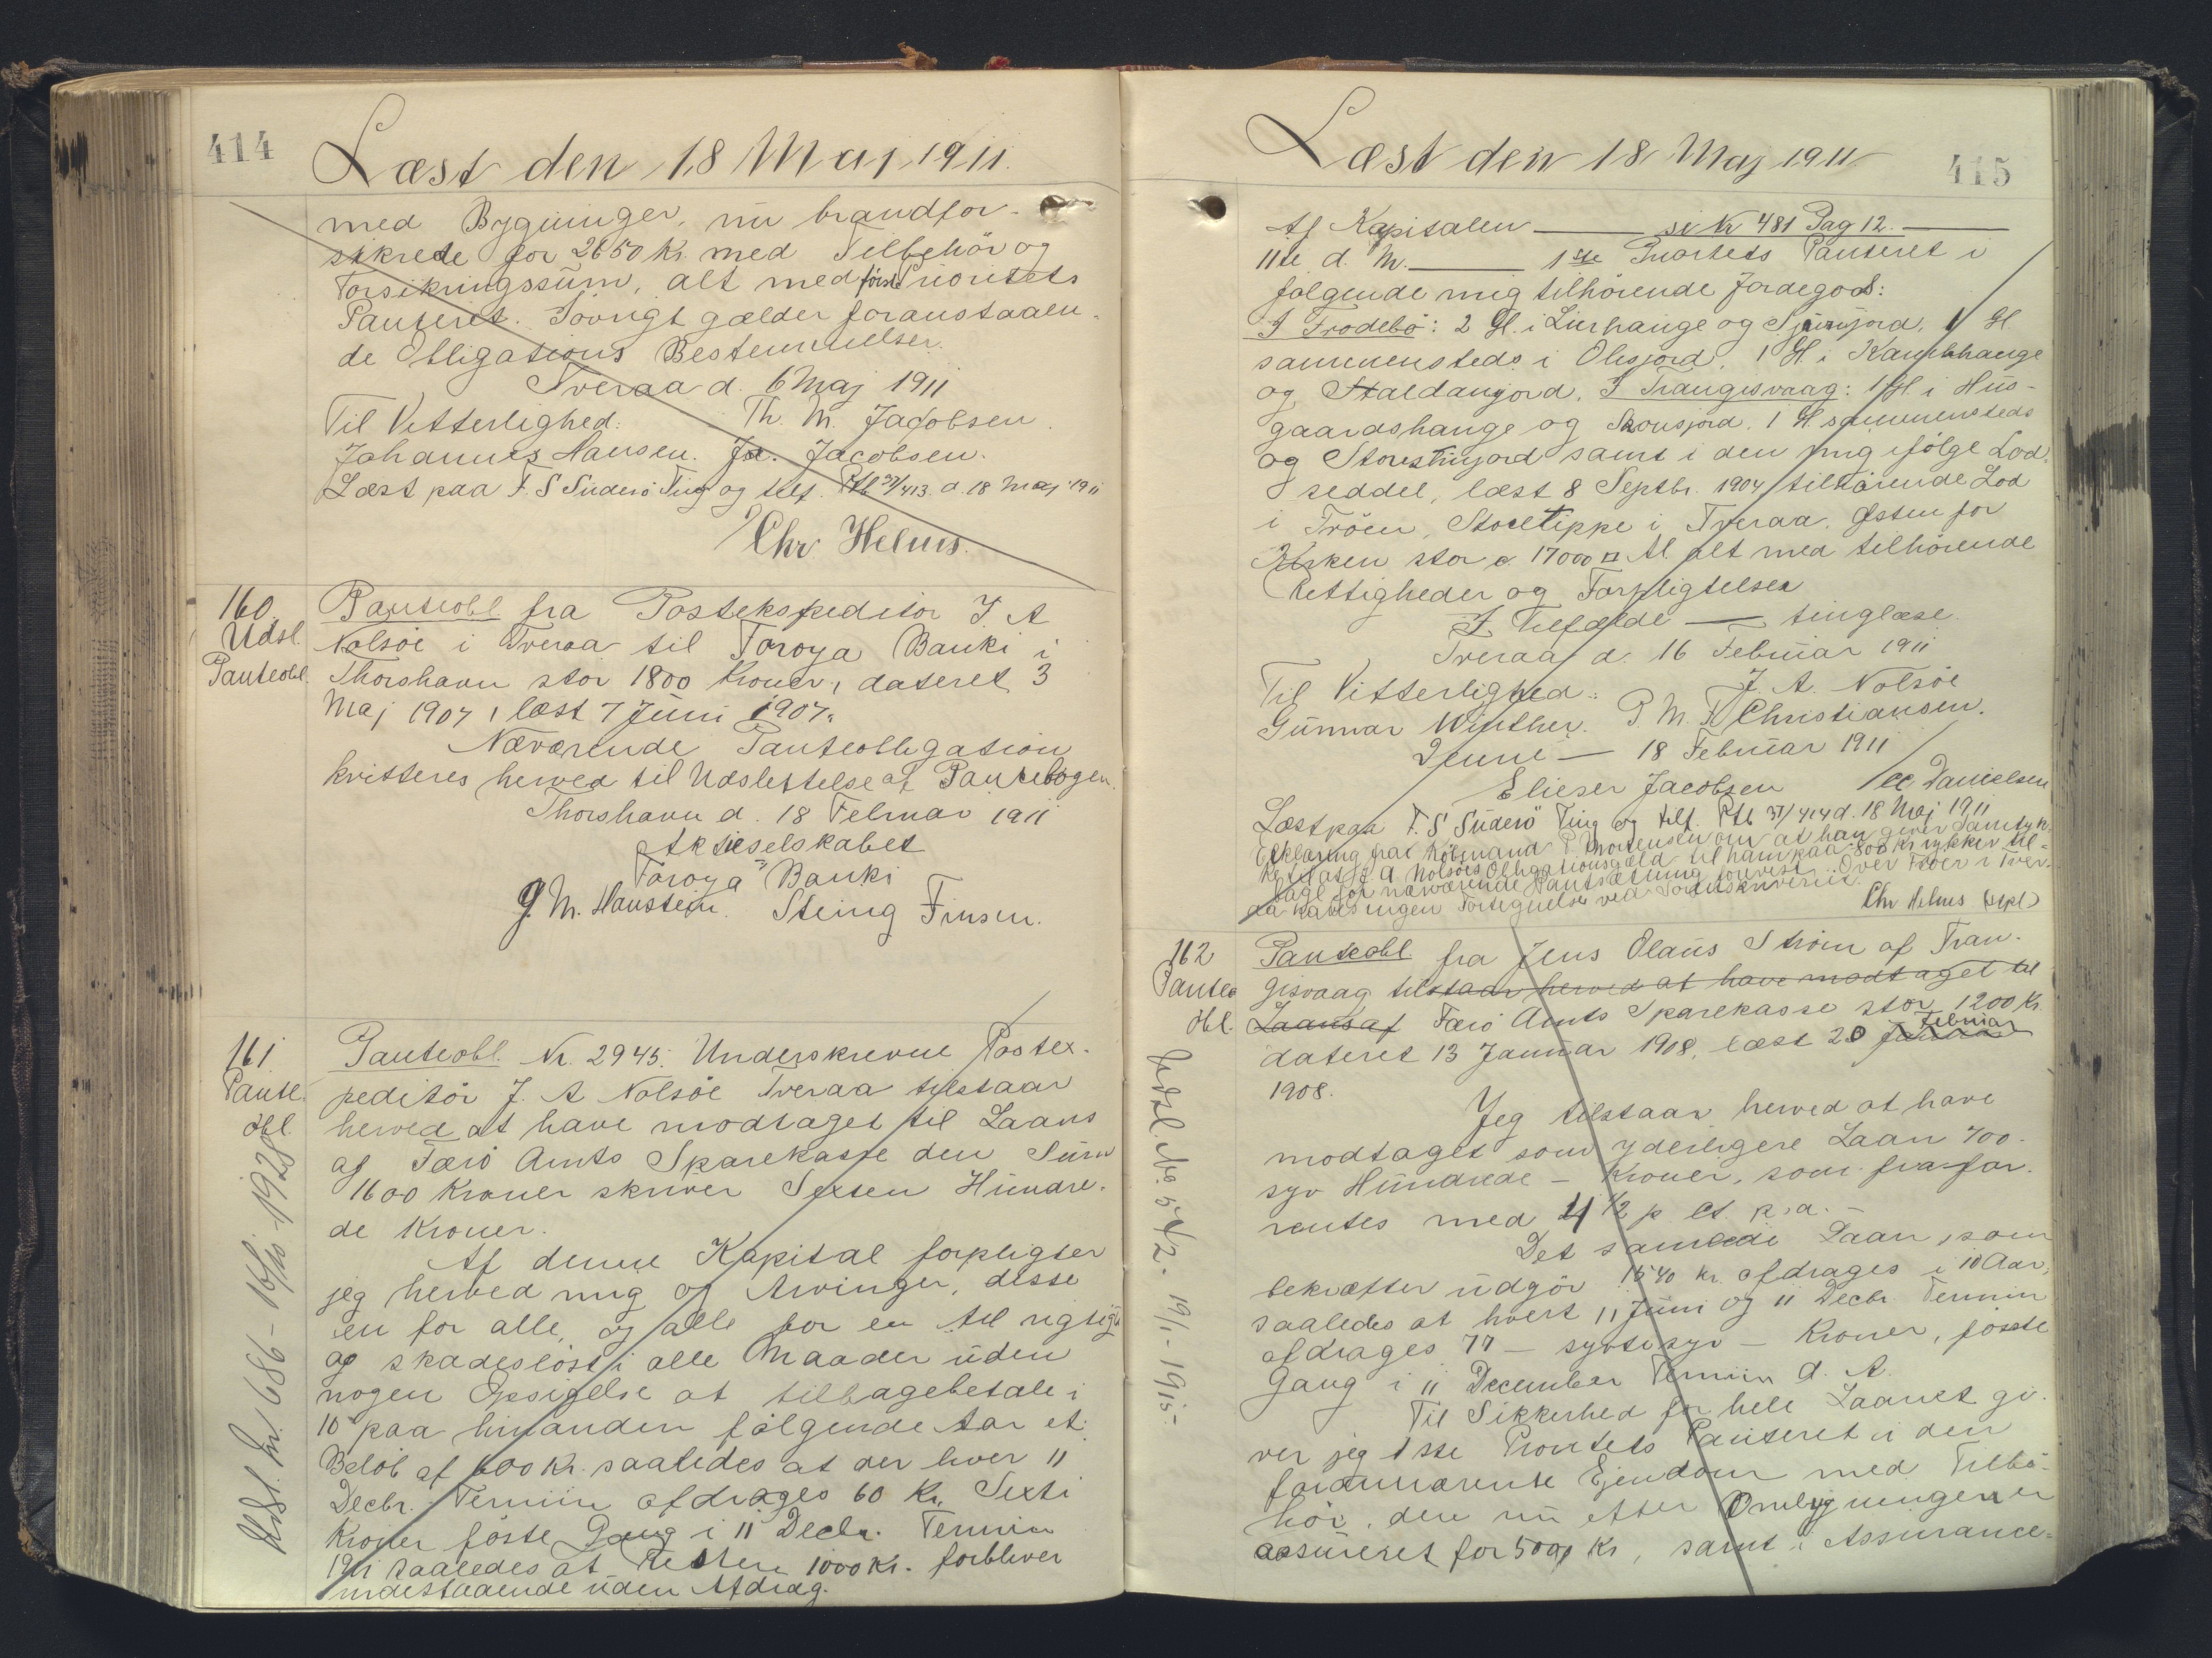 414
Læst den 18 Maj 1911.
med Bygninger, nu brandfor-
sikrede for 2650 Kr. med Tilbehör og
Forsikringssum, alt med först Prioritets
Panteret. Iövrigt gælder foranstaaen-
de Obligations Bestemmelser.
Tveraa d. 6 Maj 1911
Til Vitterlighed: Th. M. Jacobsen.
Johannes Hansen. Ja. Jacobsen.
Læst paa F. S Suderö Ting og tilf. Ptb 37/413 d. 18 Maj 1911
Chr Helms.
160.
Udsl.
Panteobl.
Panteobl fra Postekspeditör J. A
Nolsöe i Tveraa til Föroya Banki i
Thorshavn stor 1800 Kroner, dateret 3
Maj 1907, læst 7 Juni 1907.
Nærværende Panteobligation
kvitteres herved til Udslettelse af Pantebogen.
Thorshavn d. 18 Februar 1911
Aktieselskabet
"Föroya Banki"
J. M. Hanstein. Steing Finsen.
161.
Pante.
obl.
Udsl. Nr. 686 - 16/10 - 1928
Panteobl. Nr. 2945. Underskrevne Postex-
peditör J. A Nolsöe Tveraa tilstaar
herved at have modtaget til Laans
af Færö Amts Sparekasse den Sum
1600 Kroner skriver Sexten Hundre-
de Kroner.
Af denne Kapital forpligter
jeg herved mig og Arvinger, disse
en for alle, og alle for en til rigtig
og skadeslöst i alle Maader uden
nogen Opsigelse at tilbagebetale i
10 paa hinanden fölgende Aar et
Belöb af 600 Kr. saaledes at der hver 11
Decbr. Termin afdrages 60 Kr. Sexti
Kroner förste Gang i 11 Decbr. Termin
1911 saaledes at Resten 1000 Kr. forbliver
indestaaende uden Afdrag.
415
Læst den 18 Maj 1911
Af Kapitalen — se Nr 481 Pag 12. —
11te d. M. — 1ste Prioritets Panteret i
fölgende mig tilhörende Jordegods:
I Frodebö: 2 Gl. i Lurhauge og Sjurujord, 1 Gl.
sammensteds i Olesjord, 1 Gl. i Kambhauge
og Staldanjord. I Trangisvaag: 1 Gl. i Hus-
gaardshauge og Skousjord, 1 Gl. sammensteds
og Storestuejord samt i den mig ifölge Lod-
seddel, læst 8 Septbr. 1904 tilhörende Lod
i Tröen, Storetippe i Tveraa, Østen for
Kirken stor c 17000 □ Al. alt med tilhörende
Rettigheder og Forpligtelser
I Tilfælde — tinglæse.
Tveraa d. 16 Februar 1911
Til Vitterlighed: J. A. Nolsöe
Gunnar Winther. P. M. F. Christiansen.
Denne — 18 Februar 1911
Elieser Jacobsen / CC Danielsen
Læst paa F. S Suderö Ting og tilf. Ptb 37/414 d. 18 Maj 1911
Erklæring fra Köbmand P Mortensen om at han giver Samtyk-
ke til at J. A Nolsöes Obligationsgæld til ham paa 800 Kr rykker til-
bage for nærværende Pantsætning forevist. Over Tröer i Tver-
aa haves ingen Fortegnelse ved Sorenskriveriet.
Chr Helms (cpl)
162
Panteo
obl.
Udsl. No. 542. 19/1 - 1915.
Panteobl. fra Jens Olaus Ström af Tran-
gisvaag tilstaar herved at have modtaget til
Laans af Færö Amts Sparekasse stor 1200 Kr.
dateret 13 Januar 1908, læst 20 Januar Februar
1908.
Jeg tilstaar herved at have
modtaget som yderligere Laan 700-
syv Hundrede - Kroner, som fra for-
rentes med 4 1/2 p Ct. p. a. -
Det samlede Laan, som
bekræfter udgör 1540 Kr. afdrages i 10 Aar,
saaledes at hvert 11 Juni og 11 Decbr Termin
afdrages 77 - syvtisyv - Kroner, förste
Gang i 11 December Termin d. A.
Til Sikkerhed for hele Laanet gi-
ver jeg 1sse Prioritets Panteret i den
forannævnte Ejendom med Tilbe-
hör, den nu efter Ombygningen er
assureret for 5000 Kr, samt i Assurance-